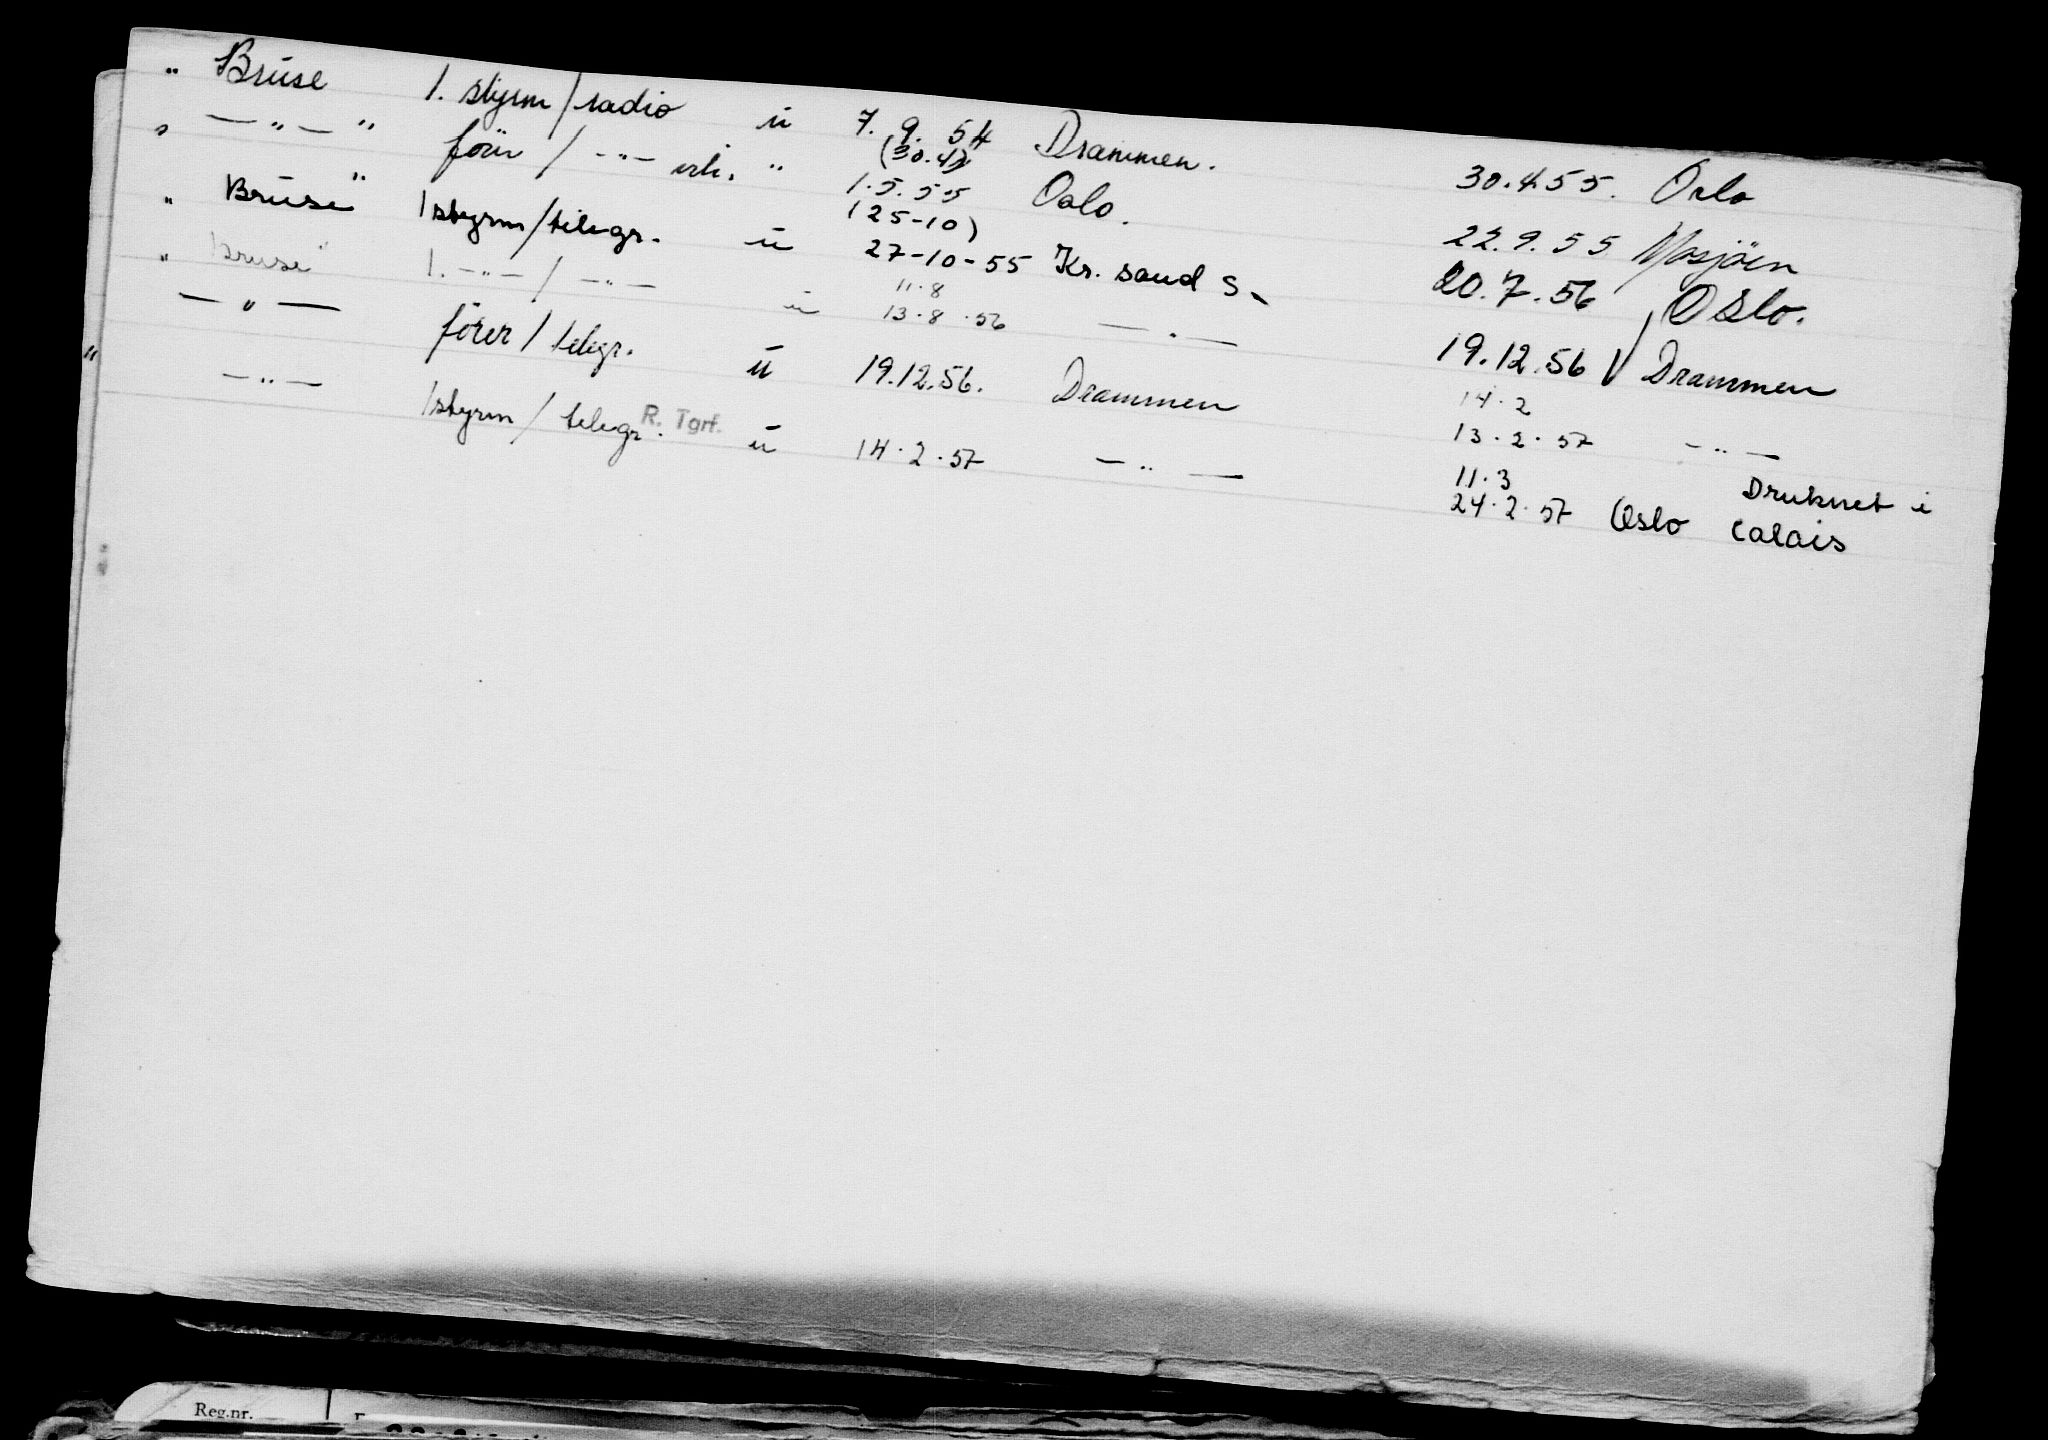 " Bruse 1. styrm/radio u 7. 9. 54 Drammen. 30.4.55. Oslo
" — " — " förer / - " - vik. " (30.4) 1.5.55 Oslo. 22.9.55 Mosjöen
" Bruse" 1 styrm/telegr. u (25-10) 27-10-55 Kr. sand S. 20.7.56 Oslo.
" Bruse" 1. - " - / - " - u 11.8 13.8.56 — " — 19.12.56 Drammen
— " — förer / telegr. u 19.12.56. Drammen 14.2 13.2.57 - " -
" — " — 1 styrm / telegr. R. Tgrf. u 14.2.57 — " — 11.3 24.2.57 Oslo Druknet i Calais
Reg.nr.